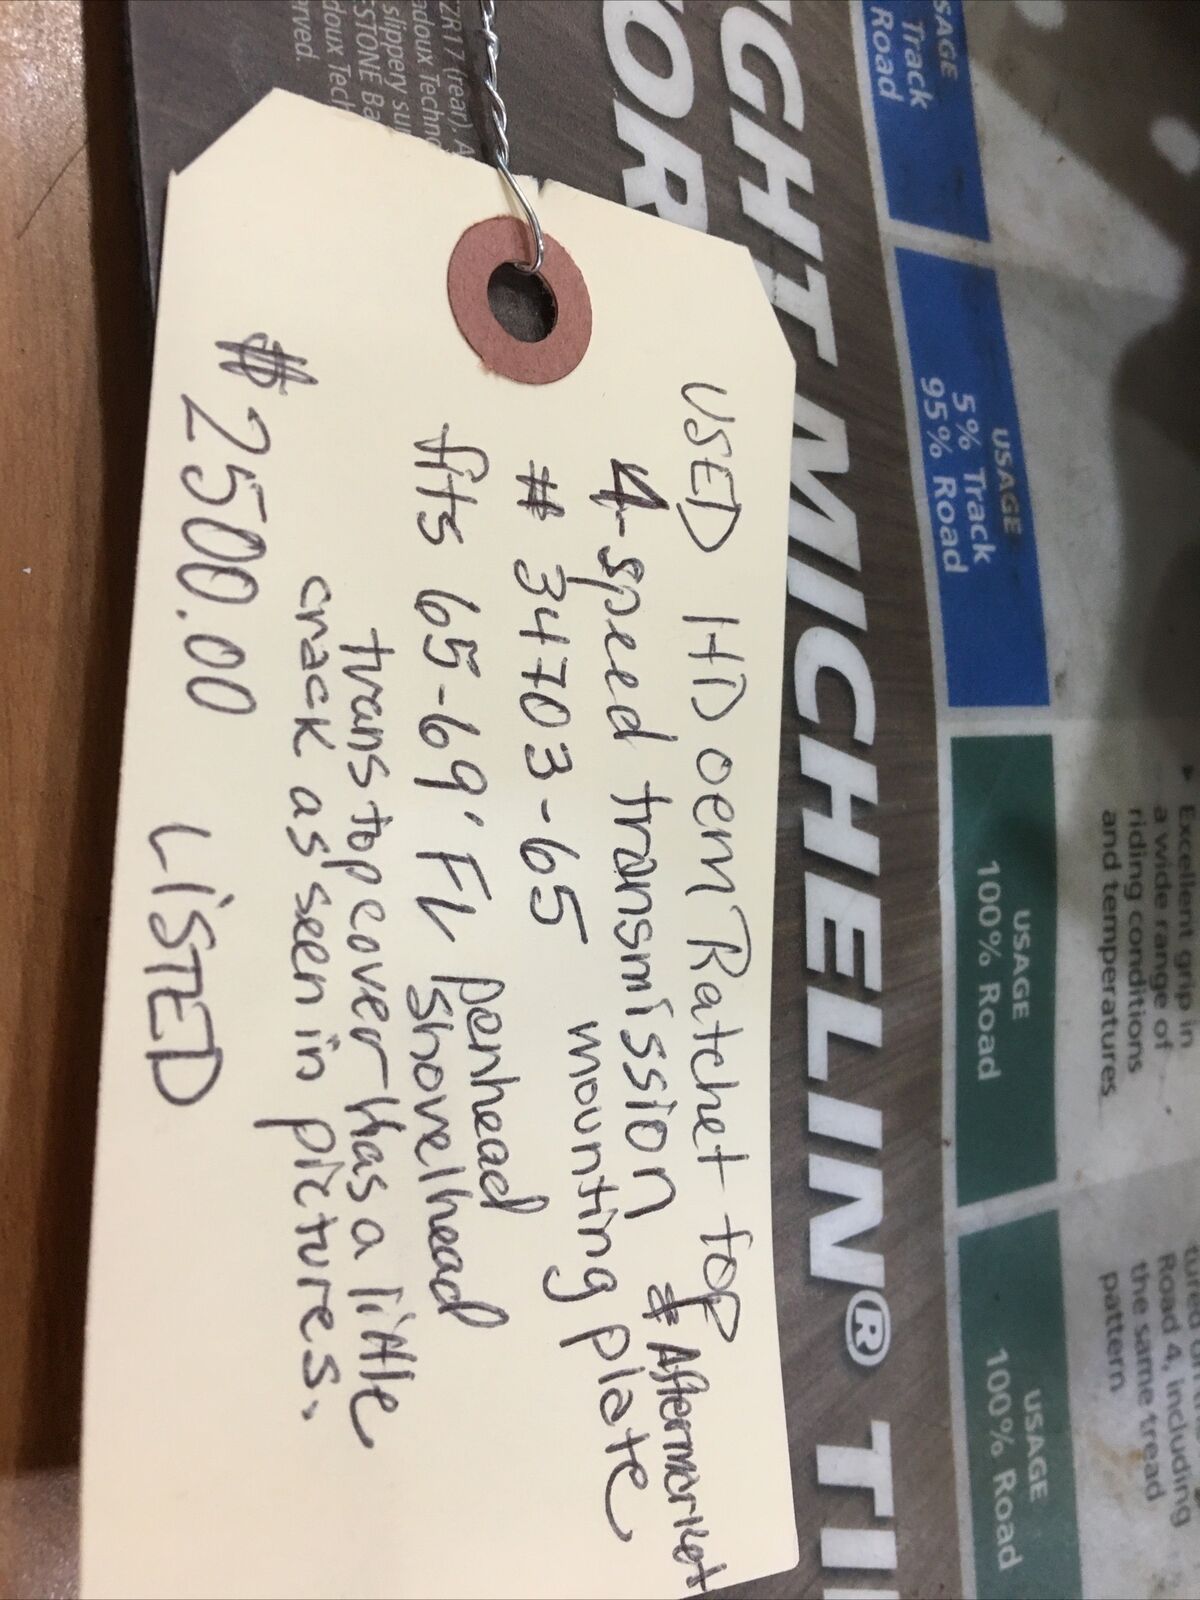 USED HD oem Ratchet top
4-speed transmission & Aftermarket
# 34703-65 mounting plate
fits 65-69' FL penhead
shovelhead
trans top cover has a little
crack as seen in pictures.
$2500.00 LISTED
GHT MICHELIN® TI
OR
ZR17 (rear). A
adoux Techno
slippery su
SSTONE Ba
doux Tech
erved.
SAGE
Track
Road
USAGE
5% Track
95% Road
USAGE
100% Road
USAGE
100% Road
▸ Excellent grip in
a wide range of
riding conditions
and temperatures
Road 4, including
the same tread
pattern